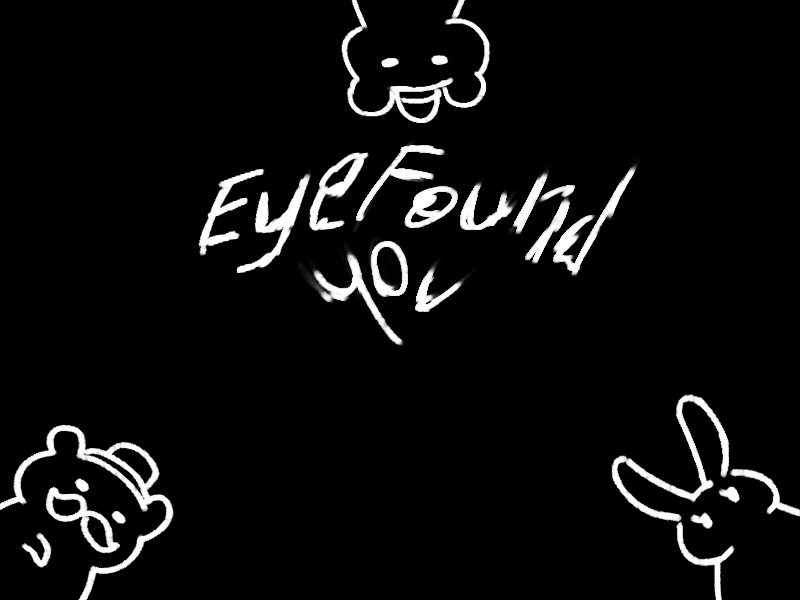 Eye Found
you